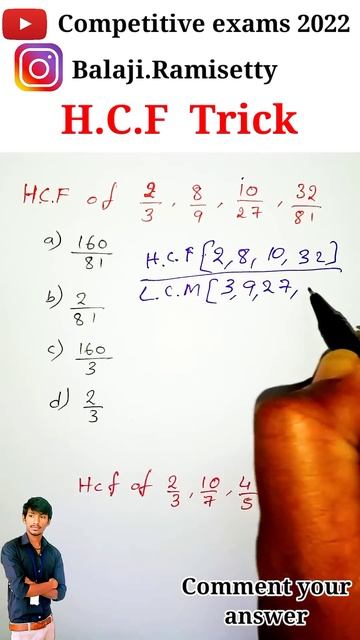 Competitive exams 2022
Balaji.Ramisetty
H.C.F Trick
H.C.F of 2/3, 8/9, 10/27, 32/81
a) 160/81
H.C.F [2, 8, 10, 32]
b) 2/81
L.C.M [3, 9, 27,
c) 160/3
d) 2/3
Hcf of 2/3, 10/7, 4/5
Comment your
answer